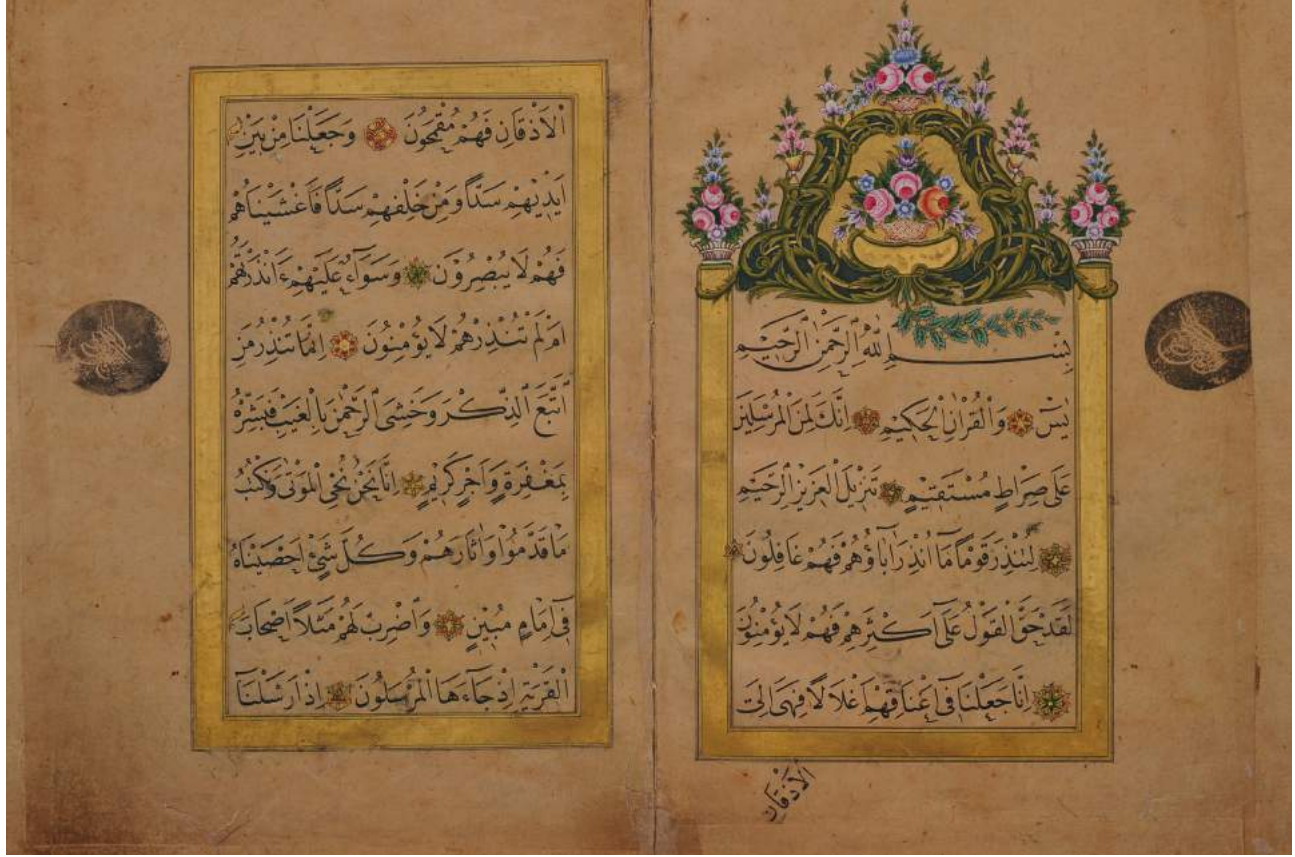 بِسْمِ اللّٰهِ الرَّحْمٰنِ الرَّحِيْمِ
يٰسٓ وَالْقُرْاٰنِ الْحَكِيْمِ اِنَّكَ لَمِنَ الْمُرْسَلِيْنَ
عَلٰى صِرَاطٍ مُسْتَقِيْمٍ تَنْزِيْلَ الْعَزِيْزِ الرَّحِيْمِ
لِتُنْذِرَ قَوْمًا مَٓا اُنْذِرَ اٰبَاؤُهُمْ فَهُمْ غَافِلُوْنَ
لَقَدْ حَقَّ الْقَوْلُ عَلٰٓى اَكْثَرِهِمْ فَهُمْ لَا يُؤْمِنُوْنَ
اِنَّا جَعَلْنَا فٓى اَعْنَاقِهِمْ اَغْلَالًا فَهِىَ اِلَى
الْاَذْقَانِ
الْاَذْقَانِ فَهُمْ مُقْمَحُوْنَ وَجَعَلْنَا مِنْ بَيْنِ
اَيْدِيْهِمْ سَدًّا وَمِنْ خَلْفِهِمْ سَدًّا فَاَغْشَيْنَاهُمْ
فَهُمْ لَا يُبْصِرُوْنَ وَسَوَٓاءٌ عَلَيْهِمْ ءَاَنْذَرْتَهُمْ
اَمْ لَمْ تُنْذِرْهُمْ لَا يُؤْمِنُوْنَ اِنَّمَا تُنْذِرُ مَنِ
اتَّبَعَ الذِّكْرَ وَخَشِىَ الرَّحْمٰنَ بِالْغَيْبِ فَبَشِّرْهُ
بِمَغْفِرَةٍ وَاَجْرٍ كَرِيْمٍ اِنَّا نَحْنُ نُحْىِ الْمَوْتٰى وَنَكْتُبُ
مَا قَدَّمُوْا وَاٰثَارَهُمْ وَكُلَّ شَىْءٍ اَحْصَيْنَاهُ
فٓى اِمَامٍ مُبِيْنٍ وَاضْرِبْ لَهُمْ مَثَلًا اَصْحَابَ
الْقَرْيَةِ اِذْ جَٓاءَهَا الْمُرْسَلُوْنَ اِذْ اَرْسَلْنَٓا